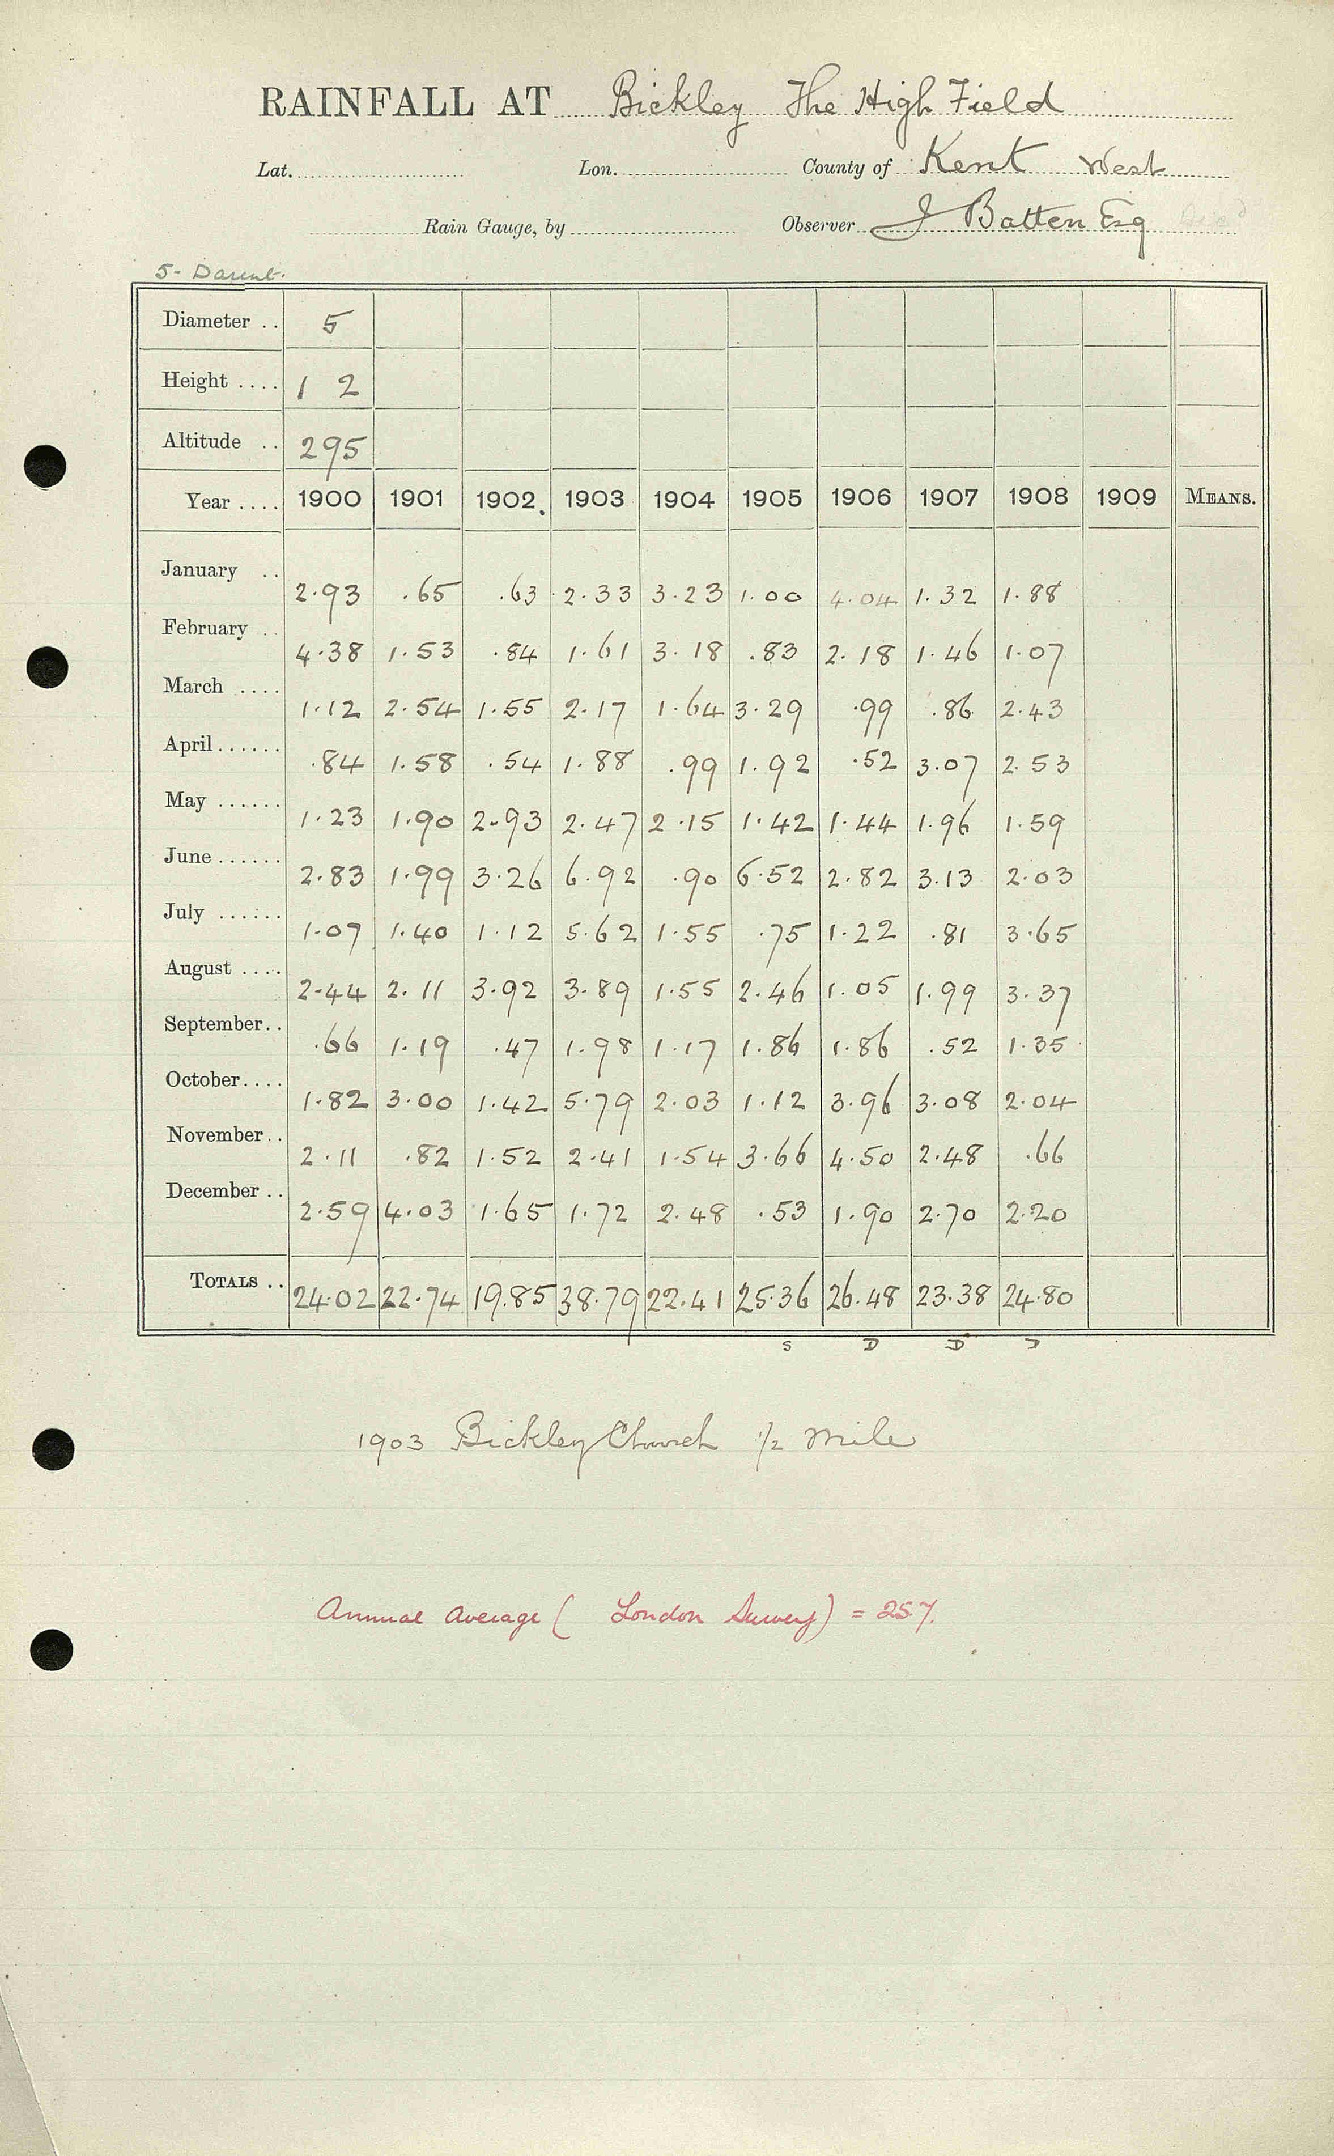 RAINFALL AT Bickley The High Field
Lat. Lon. County of Kent West
Rain Gauge, by Observer J Batten Esq
5- Darent.
Diameter .. 5
Height .... 1 2
Altitude .. 295
Year .... 1900 1901 1902 1903 1904 1905 1906 1907 1908 1909 MEANS.
January .. 2.93 .65 .63 2.33 3.23 1.00 4.04 1.32 1.88
February .. 4.38 1.53 .84 1.61 3.18 .83 2.18 1.46 1.07
March .... 1.12 2.54 1.55 2.17 1.64 3.29 .99 .86 2.43
April ...... .84 1.58 .54 1.88 .99 1.92 .52 3.07 2.53
May ...... 1.23 1.90 2.93 2.47 2.15 1.42 1.44 1.96 1.59
June ...... 2.83 1.99 3.26 6.92 .90 6.52 2.82 3.13 2.03
July ...... 1.07 1.40 1.12 5.62 1.55 .75 1.22 .81 3.65
August .... 2.44 2.11 3.92 3.89 1.55 2.46 1.05 1.99 3.37
September.. .66 1.19 .47 1.98 1.17 1.86 1.86 .52 1.35
October.... 1.82 3.00 1.42 5.79 2.03 1.12 3.96 3.08 2.04
November.. 2.11 .82 1.52 2.41 1.54 3.66 4.50 2.48 .66
December .. 2.59 4.03 1.65 1.72 2.48 .53 1.90 2.70 2.20
TOTALS .. 24.02 22.74 19.85 38.79 22.41 25.36 26.48 23.38 24.80
S D D D
1903 Bickley Church 1/2 mile
Annual Average ( London Survey) = 25.7.